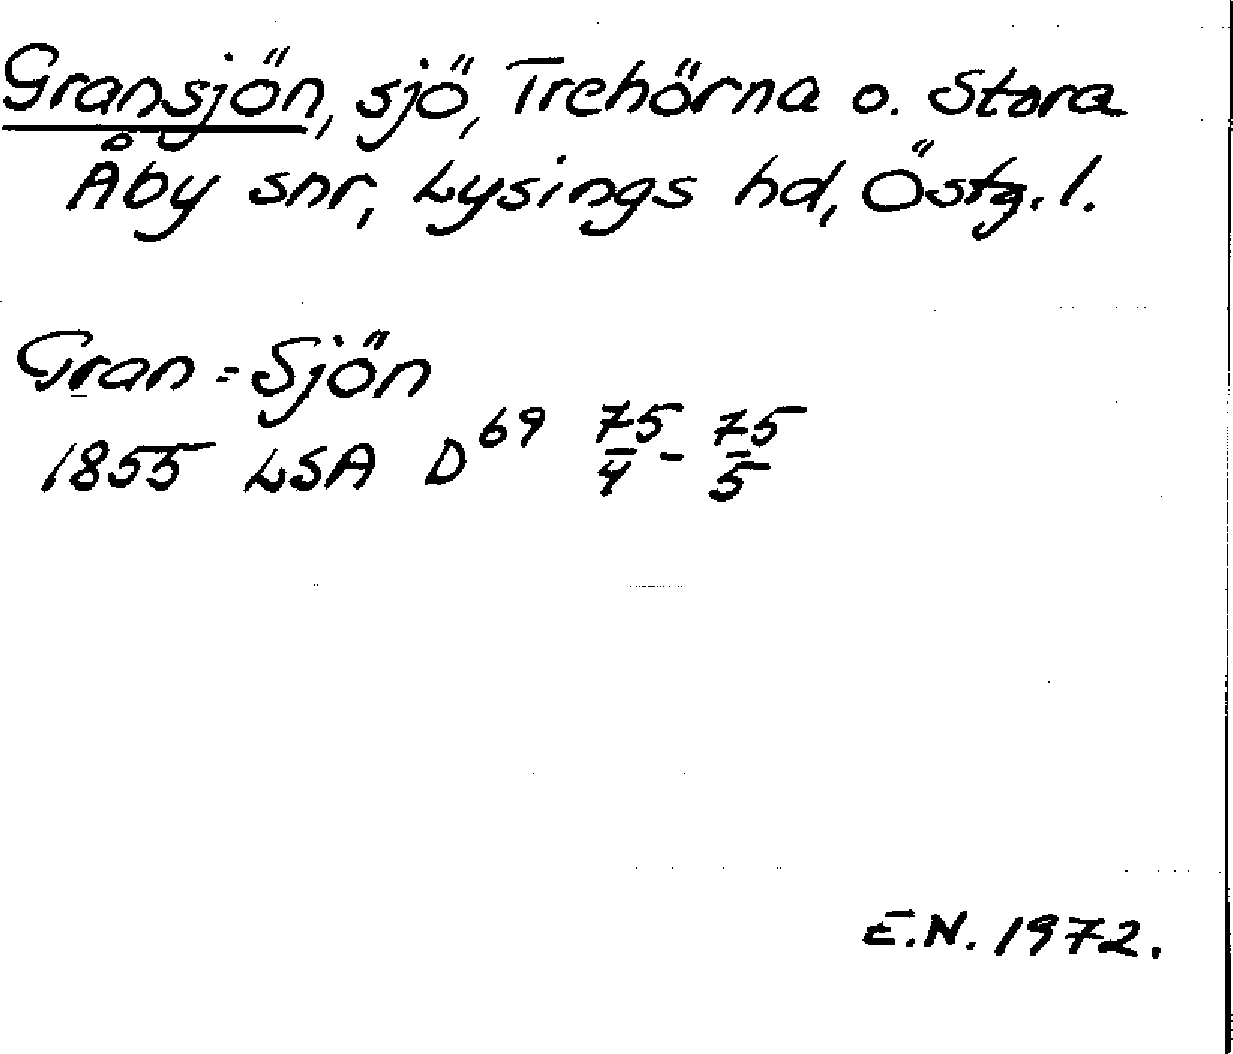 Gransjön, sjö, Trehörna o. Stora
Åby snr, Lysings hd, Östg. l.
Gran=Sjön
1855 LSA D69 75/4 - 75/5
E.N. 1972.